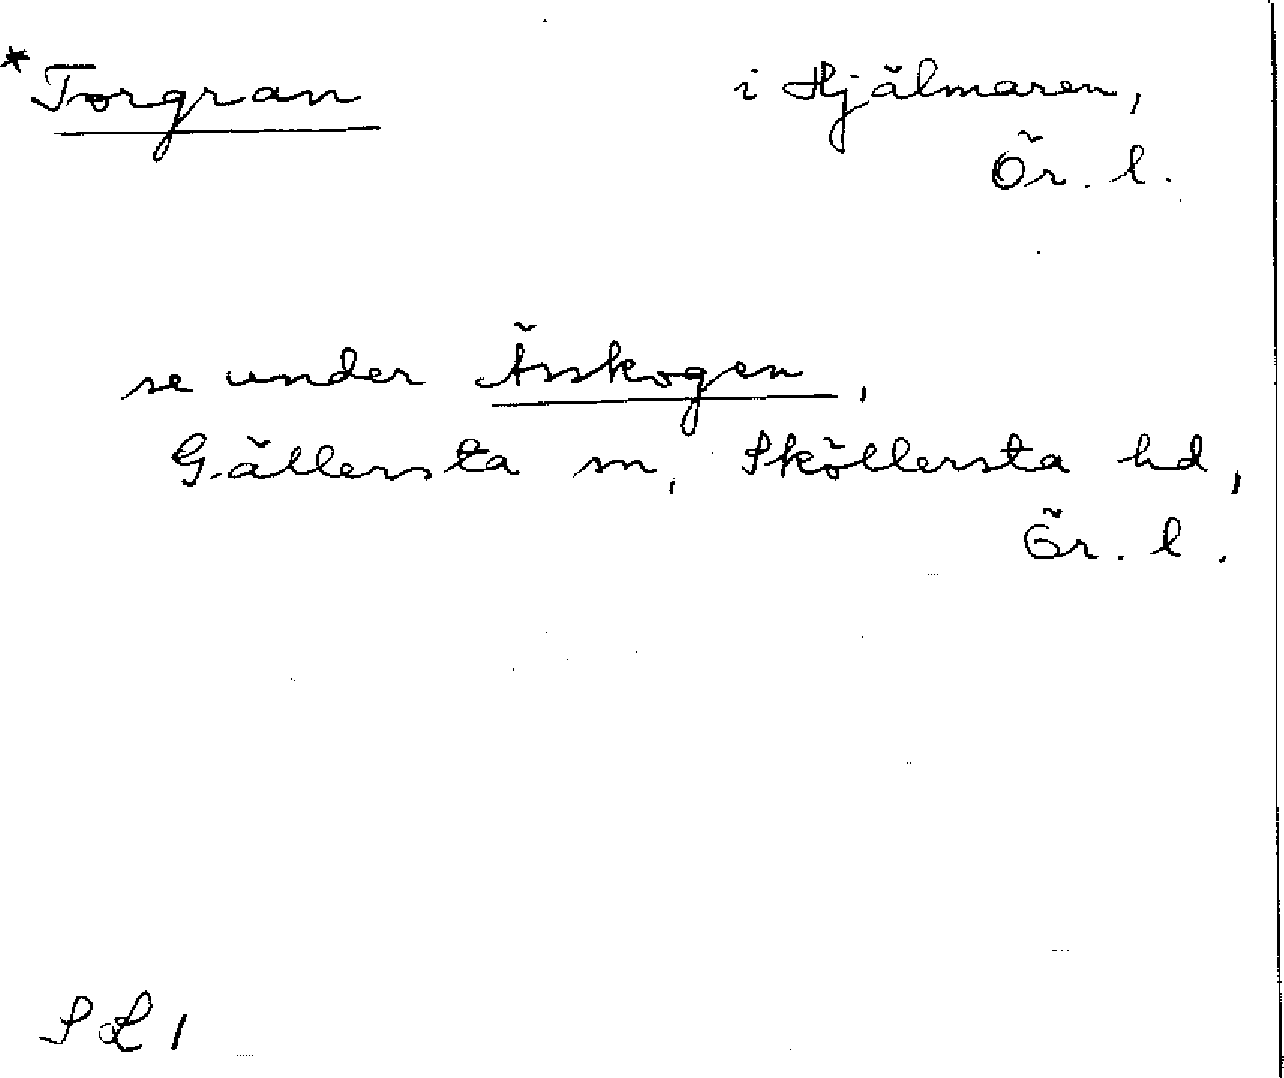 *Torgran
i Hjälmaren,
Ör. l.
se under Ässkogen,
Gällersta sn, Sköllersta hd,
Ör. l.